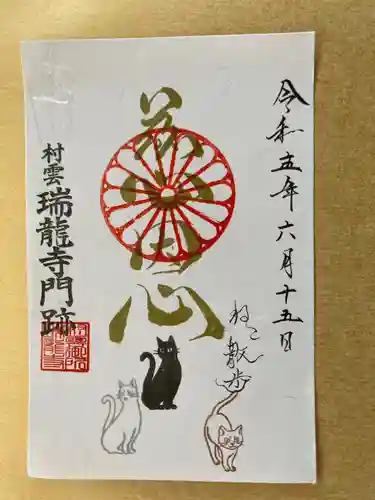 令和五年六月十五日
慈恩
ねこ散歩
村雲
瑞龍寺門跡